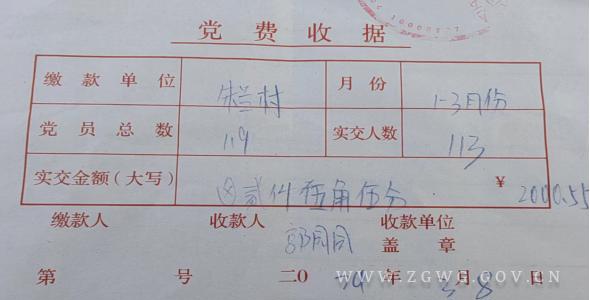 党费收据
缴款单位 朱兰村 月份 1-3月份
党员总数 119 实交人数 113
实交金额（大写） ⊗贰仟伍角伍分 ¥ 2000.55
缴款人 收款人 郭同同 收款单位
盖章
第 号 二0 年 3月8日
WWW.ZGWG.GOV.CN